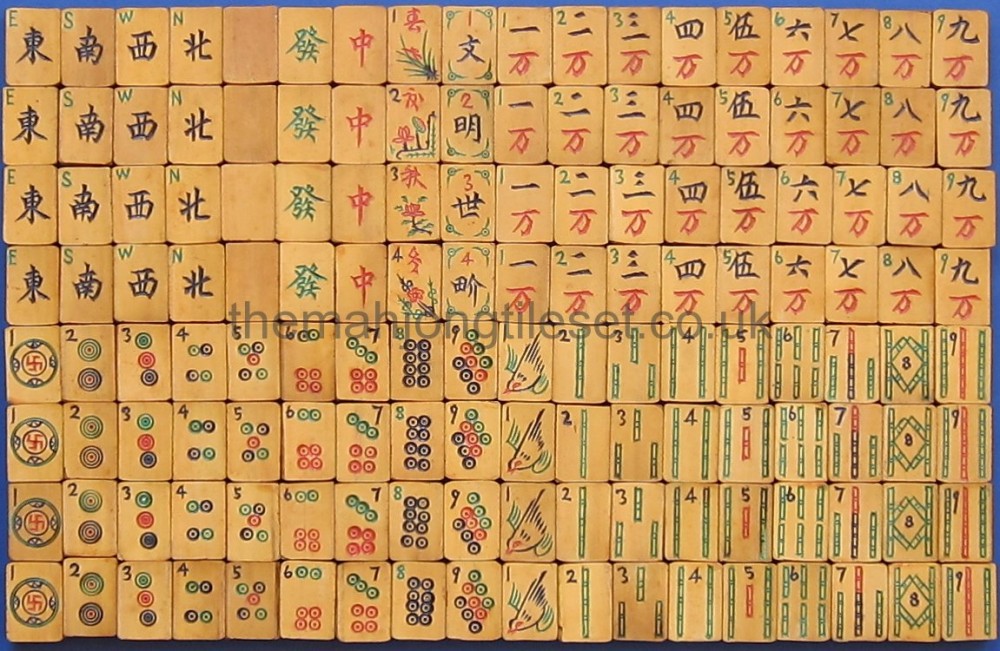 E 東 S 南 W 西 N 北 發 中 1 春 1 文 1 一万 2 二万 3 三万 4 四万 5 伍万 6 六万 7 七万 8 八万 9 九万
E 東 S 南 W 西 N 北 發 中 2 2 明 1 一万 2 二万 3 三万 4 四万 5 伍万 6 六万 7 七万 8 八万 9 九万
E 東 S 南 W 西 N 北 發 中 3 秋 3 世 1 一万 2 二万 3 三万 4 四万 5 伍万 6 六万 7 七万 8 八万 9 九万
E 東 S 南 W 西 N 北 發 中 4 冬 4 畍 1 一万 2 二万 3 三万 4 四万 5 伍万 6 六万 7 七万 8 八万 9 九万
themahjongtileset.co.uk
1 2 3 4 5 6 7 8 9 1 2 3 4 5 6 7 8 9
1 2 3 4 5 6 7 8 9 1 2 3 4 5 6 7 8 9
1 2 3 4 5 6 7 8 9 1 2 3 4 5 6 7 8 9
1 2 3 4 5 6 7 8 9 1 2 3 4 5 6 7 8 9